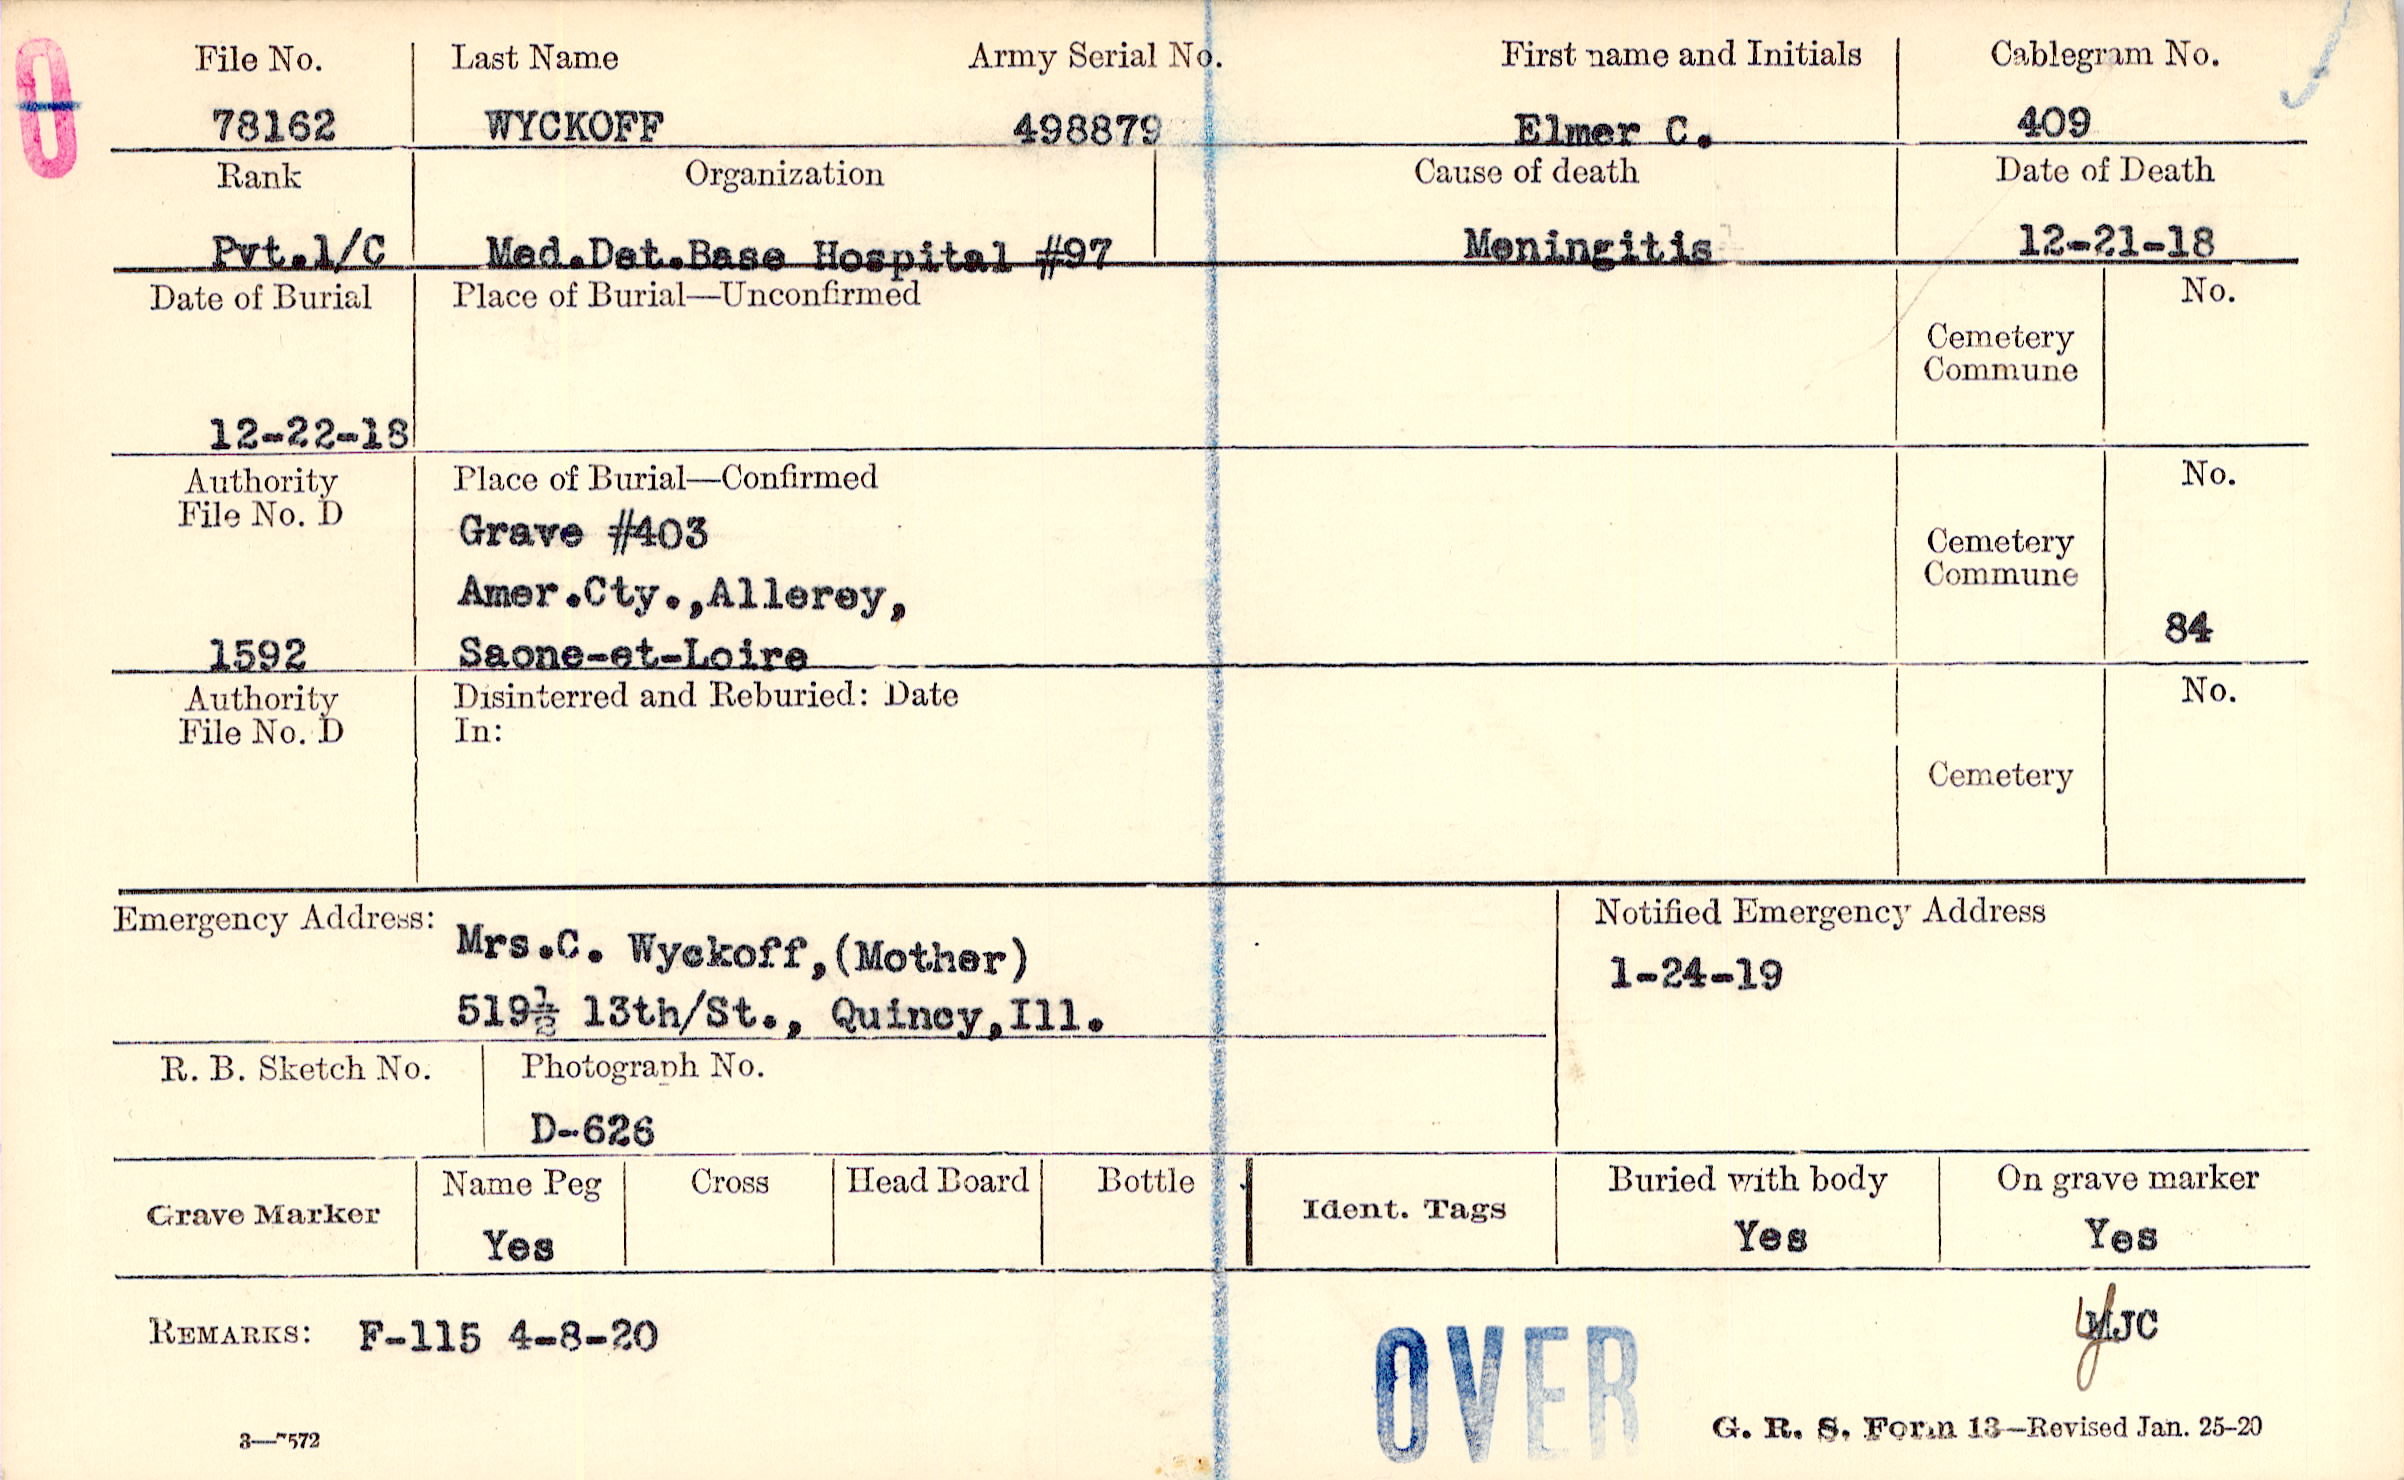 0
File No. Last Name Army Serial No. First name and Initials Cablegram No.
78162 WYCKOFF 498879 Elmer C. 409
Rank Organization Cause of death Date of Death
Pvt.1/C Med.Det.Base Hospital #97 Meningitis 12-21-18
Date of Burial Place of Burial—Unconfirmed No.
Cemetery
Commune
12-22-18
Authority Place of Burial—Confirmed No.
File No. D
Grave #403
Cemetery
Commune
Amer.Cty.,Allerey,
84
1592 Saone-et-Loire
Authority Disinterred and Reburied: Date No.
File No. D In:
Cemetery
Emergency Address: Notified Emergency Address
Mrs.C. Wyckoff,(Mother)
1-24-19
519½ 13th/St., Quincy,Ill.
R. B. Sketch No. Photograph No.
D-626
Name Peg Cross Head Board Bottle Buried with body On grave marker
Grave Marker Ident. Tags
Yes Yes Yes
MJC
REMARKS: F-115 4-8-20
OVER
3—7572 G. R. S. Form 13—Revised Jan. 25-20